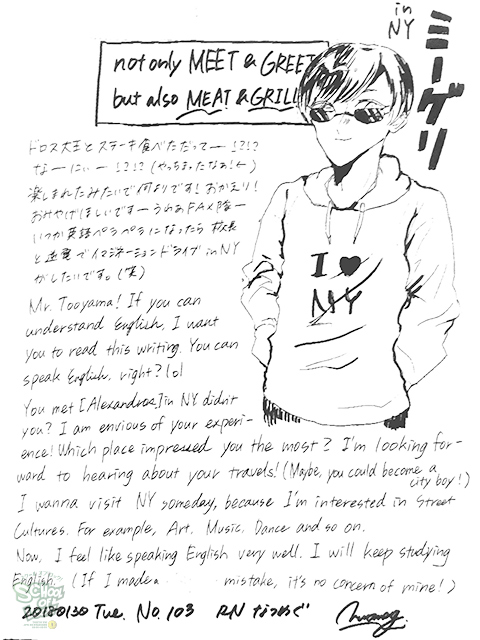 in
NY
ミーグリ
not only MEET & GREET
but also MEAT & GRILL
ドロス大王とステーキ食べただってー!?!?
なーにぃー!?!?(やっちまったなぁ!←)
楽しまれたみたいで何よりです!おかえり!
おみやげほしいですーうわあFAX隊ー
いつか英語ペラペラになったら校長
と逆電でイマジネーションドライブ in NY
がしたいです。(笑)
I ♥
NY
Mr. Tooyama! If you can
understand English, I want
you to read this writing. You can
speak English, right? lol
You met [Alexandros] in NY didn't
you? I am envious of your experi-
ence! Which place impressed you the most? I'm looking for-
ward to hearing about your travels! (Maybe, you could become a
city boy!)
I wanna visit NY someday, because I'm interested in Street
Cultures. For example, Art, Music, Dance and so on.
Now, I feel like speaking English very well. I will keep studying
English. (If I made a mistake, it's no concern of mine!)
20180130 Tue. No. 103 RN なつめぐ